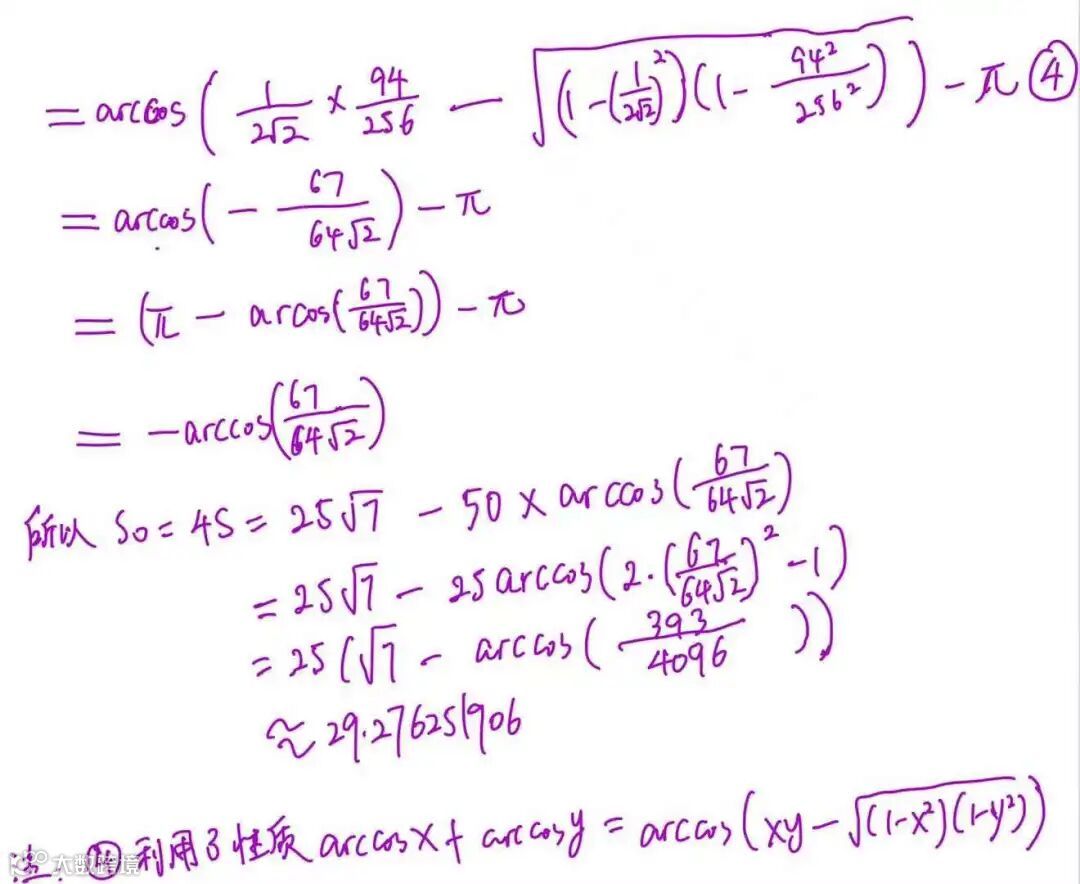 = arccos(1/2√2 × 94/256 — √(1-(1/2√2)²)(1-94²/256²)) - π ④
= arccos(-67/64√2) - π
= (π - arcos(67/64√2)) - π
= -arccos(67/64√2)
所以 S0 = 4S = 25√7 - 50 × arccos(67/64√2)
= 25√7 - 25arccos(2·(67/64√2)² - 1)
= 25(√7 - arccos(393/4096))
≈ 29.276251906
注: ④利用了性质 arccosx + arccosy = arccos(xy - √(1-x²)(1-y²))
大数跨境